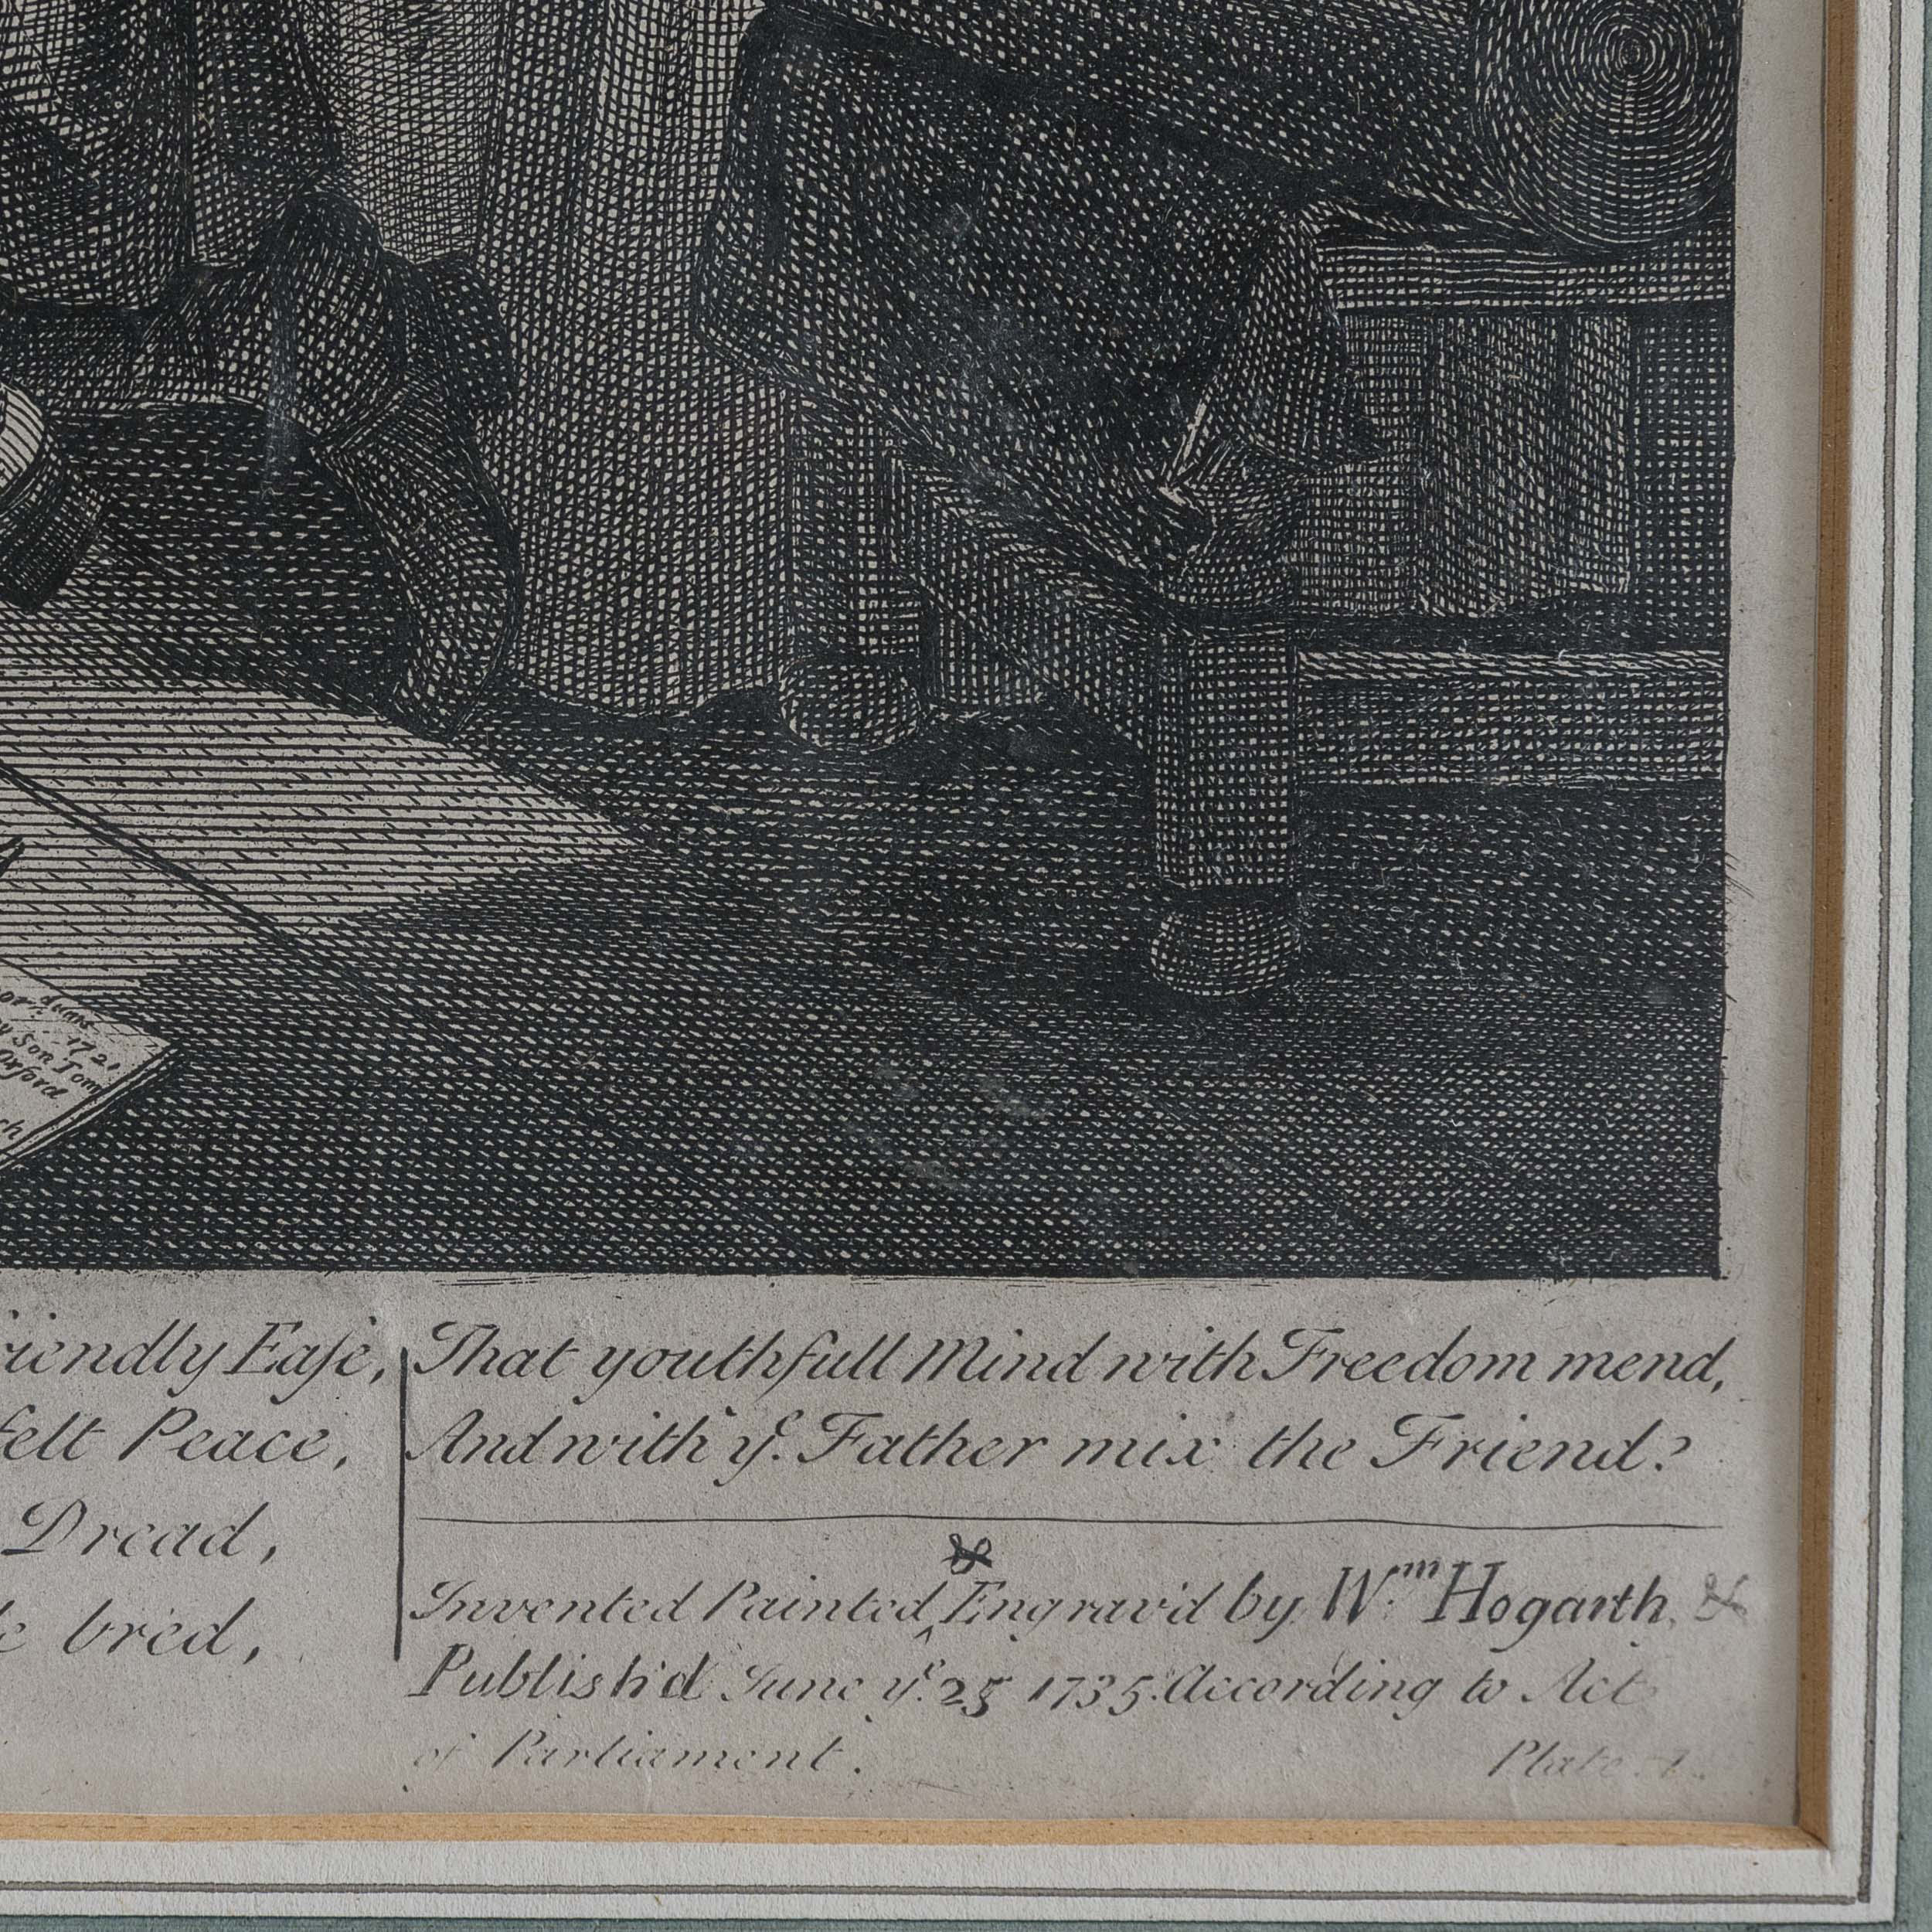 or: dians
1721
y Son Tom
Oxford
ch
riendly Ease,
felt Peace,
Dread,
bred,
That youthfull Mind with Freedom mend,
And with yᵉ. Father mix the Friend?
&
Invented Painted‸Engrav'd by Wᵐ. Hogarth. &
Publish'd June yᵉ. 25 1735. According to Act
of Parliament.
Plate 1.